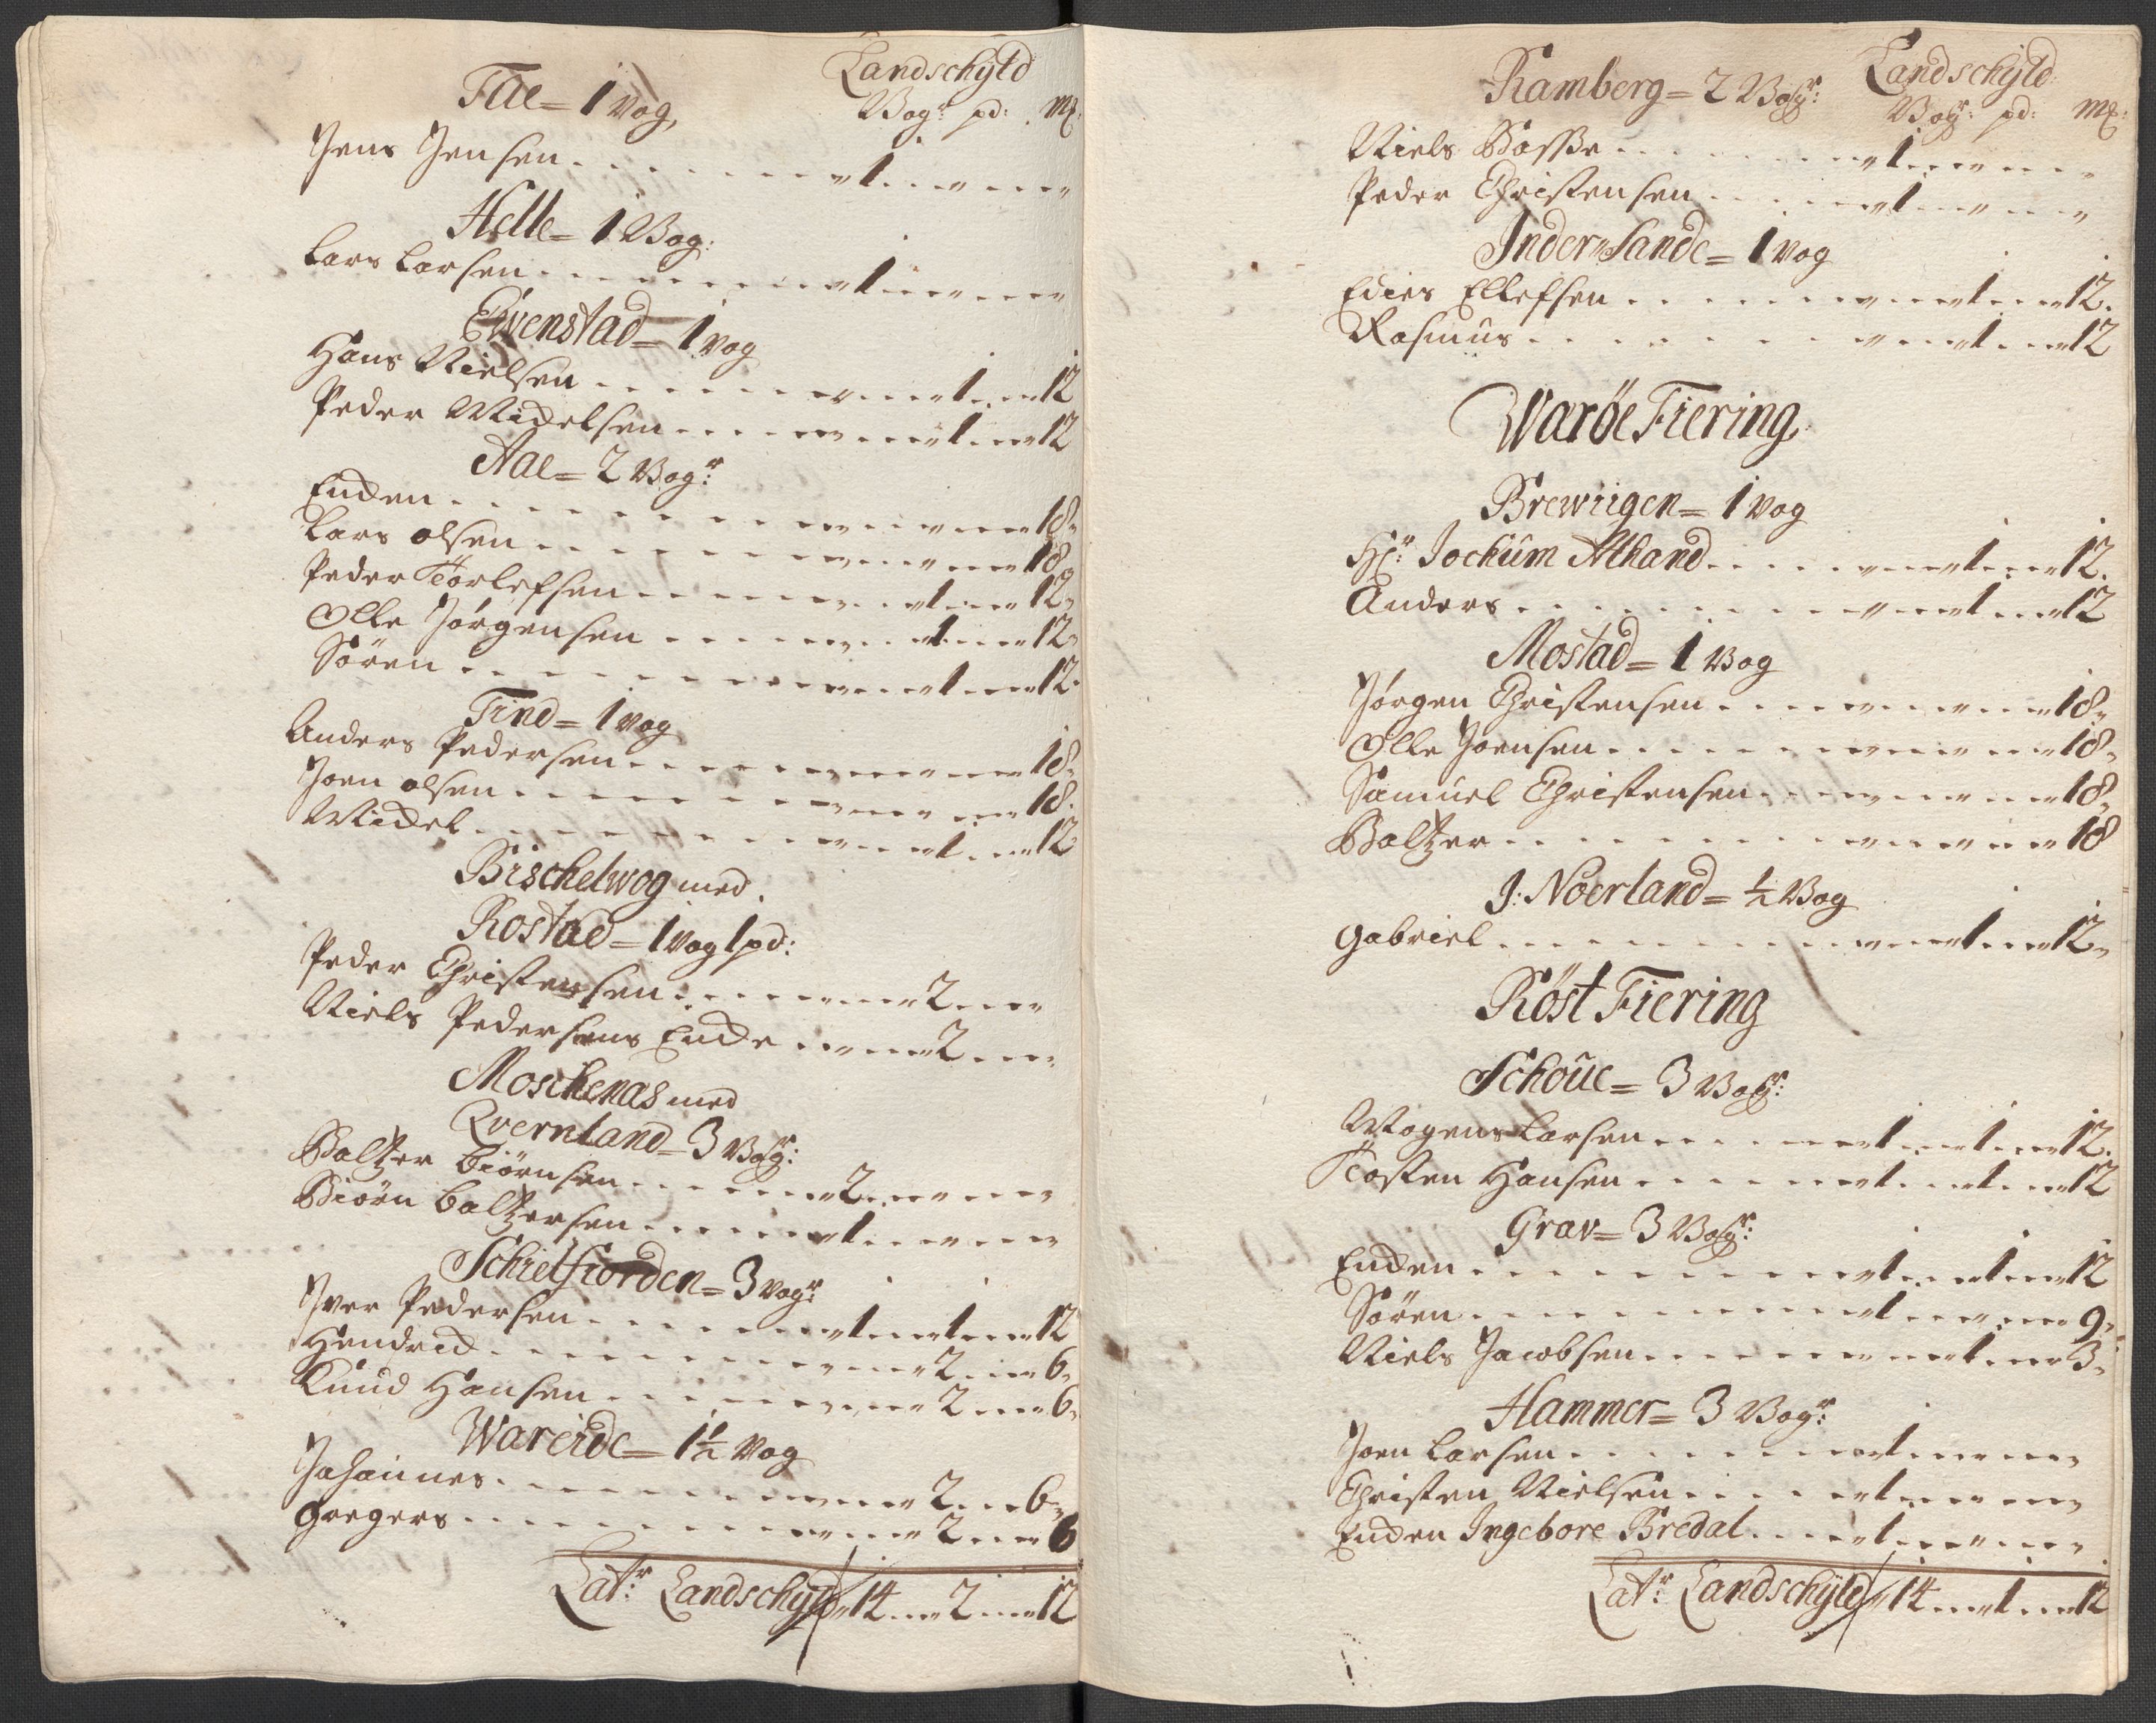 Landschyld
Tae = 1 Vog, Vogr pd: Mk:
Jens Jensen 1
Helle = 1 Vog:
Lars Larsen 1
Ewenstad = 1 Vog
Hans Nielsen 1 12
Peder Michelsen 1 12
Aae = 2 Vogr:
Encken 18
Lars olsen 18
Peder Torlefsen 1 12
Olle Jørgensen 1 12
Sören 1 12
Tind = 1 Vog
Anders Pedersen 18
Joen olsen 18
Michel 1 12
Bischelwog med
Rostad = 1 Vog 1 pd:
Peder Christensen 2
Niels Pedersens Encke 2
Moschenas med
Qvernland = 3 Vogr:
Baltzer Biörnsen 2
Biörn Baltzersen 1
Schielfiorden = 3 Vogr:
Iver Pedersen 1 1 12
Hendrich 2 6
Knud Hansen 2 6
Wareide = 1½ Vog
Johannes 2 6
Gregers 2 6
Latr: Landschyld 14 2 12
Landschyld
Ramberg = 2 Vogr: Vogr: pd: Mk:
Niels Basse 1
Peder Christensen 1
Inder Sande = 1 Vog
Edies Ellefsen 1 12
Rasmus 1 12
Warøe Fiering
Brewiigen = 1 Vog
Hr: Jochum Alhand 1 12
Anders 1 12
Mostad = 1 Vog
Jørgen Christensen 18
Olle Joensen 18
Samuel Christensen 18
Baltzer 18
J: Noerland = ½ Vog
Gabriel 1 12
Røst Fiering
Schoue = 3 Vogr:
Mogens Larsen 1 1 12
Tosten Hansen 1 1 12
Grav = 3 Vogr:
Encken 1 1 12
Sören 1 9
Niels Jacobsen 1 3
Hammer = 3 Vogr:
Joen Larsen 1
Christen Nielsen 1
Encken Ingebore Bredal 1
Latr: Landschyld 14 1 12